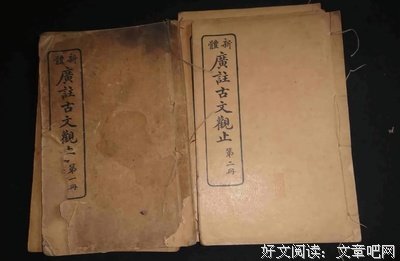 新體
廣註古文觀止
第一冊
新體
廣註古文觀止
第二冊
好文阅读：文章吧网